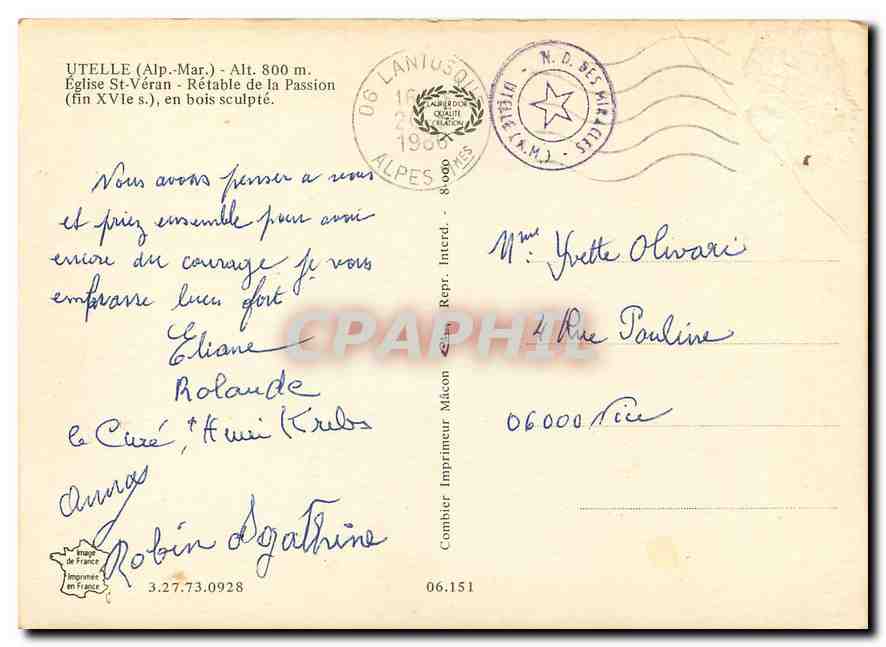 UTELLE (Alp.-Mar.) - Alt. 800 m.
Église St-Véran - Rétable de la Passion
(fin XVIe s.), en bois sculpté.
06 LANTOSQUE
1980
ALPES Mmes
LAURIER D'OR
DE
QUALITÉ
CRÉATION
N. D. DES MIRACLES - UTELLE (A.M.) -
Nous avons penser a vous
et priez ensemble pour avoir
encore du courage je vous
embrasse bien fort
Eliane
Rolande
le Curé, + Henri Krebs
Robin Agathine
Image
de France
Imprimée
en France
3.27.73.0928
06.151
Combier Imprimeur Mâcon Cim Repr. Interd. - 8-000
Mme: Yvette Olivari
4 Rue Pauline
06000 Nice
CPAPHIL